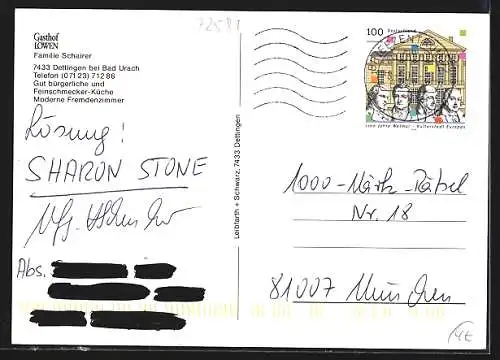 72581
Gasthof
LÖWEN
Familie Schairer
7433 Dettingen bei Bad Urach
Telefon (07123) 71286
Gut bürgerliche und
Feinschmecker-Küche
Moderne Fremdenzimmer
Lösung!
SHARON STONE
Mfg.
Abs.
Leibfarth + Schwarz, 7433 Dettingen
100 Deutschland
1100 Jahre Weimar · Kulturstadt Europas
1000-Märk-Rätsel
Nr. 18
81007 München
4€